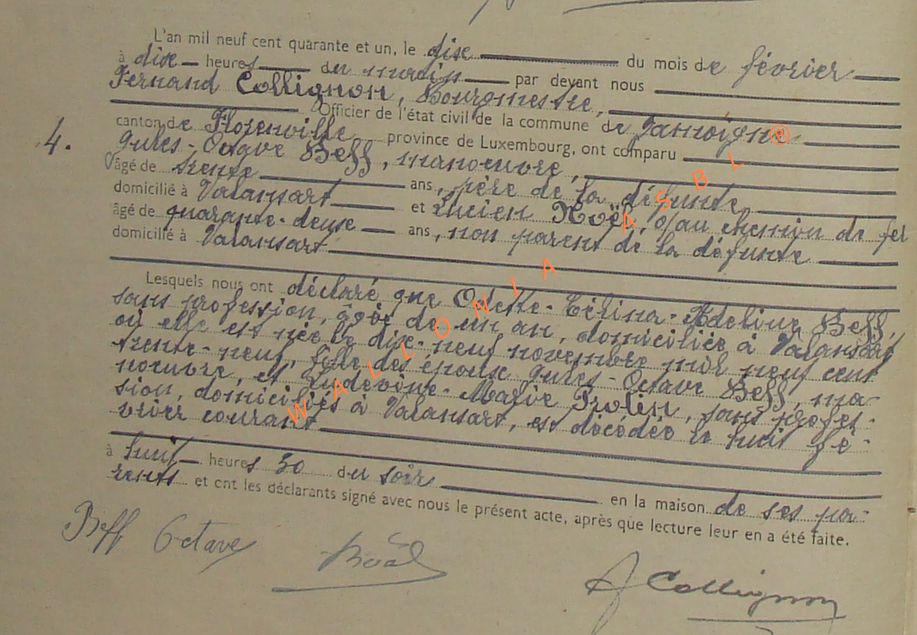 L'an mil neuf cent quarante et un, le dixe du mois de février
à dix heures du matin par devant nous
Fernand Collignon, Bourgmestre,
Officier de l'état civil de la commune de Jamoigne
canton de Florenville province de Luxembourg, ont comparu
4. Jules-Octave Beff, manoeuvre,
âgé de trente ans, père de la défunte
domicilié à Valansart et Lucien Noël, o/au chemin de fer
âgé de quarante-deux ans, non parent de la défunte
domicilié à Valansart
Lesquels nous ont déclaré que Odette-Célina-Adeline Beff,
sans profession, âgée de un an, domiciliée à Valansart
où elle est née le dix-neuf novembre mil neuf cent
trente-neuf, fille des époux Jules-Octave Beff, ma-
noeuvre, et Marie Protin, sans profes-
sion, domiciliés à Valansart, est décédée le huit fé-
vrier courant
à huit heures 30 du soir en la maison de ses pa-
rents et ont les déclarants signé avec nous le présent acte, après que lecture leur en a été faite.
Beff Octave Noël
Collignon
WALLONIA ASBL ®